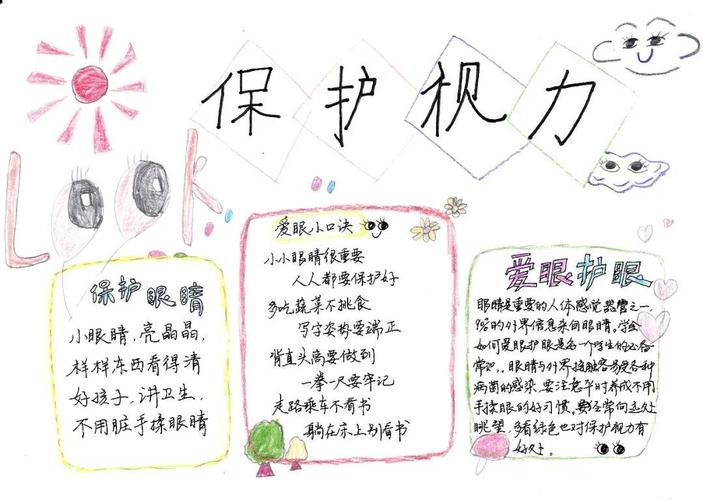 保护视力
Look
保护眼睛
小眼睛,亮晶晶,
样样东西看得清
好孩子,讲卫生,
不用脏手揉眼睛
爱眼小口诀
小小眼睛很重要
人人都要保护好
多吃蔬菜不挑食
写字姿势要端正
背直头高要做到
一拳一尺要牢记
走路乘车不看书
躺在床上别看书
爱眼护眼
眼睛是重要的人体感觉器官之一
的外界信息来自眼睛,学会
如何爱眼护眼是每一个学生的必备
常识。眼睛与外界接触容易受各种
病菌的感染,要注意平时养成不用
手揉眼的好习惯,要经常向远处
眺望,多看绿色也对保护视力有
好处。